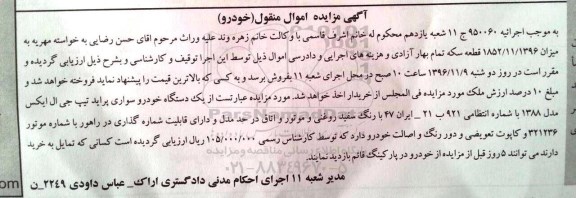 آگهی مزایده اموال منقول(خودرو)
به موجب اجرائیه ۹۵۰۰۶۰ ج ۱۱ شعبه یازدهم محکوم له خانم اشرف قاسمی با وکالت خانم زهره وند علیه وراث مرحوم اقای حسن رضایی به خواسته مهریه به
میزان ۱۸۵۲/۱۱/۱۳۹۶ قطعه سکه تمام بهار آزادی و هزینه های اجرایی و دادرسی اموال ذیل توسط این اجرا توقیف و کارشناسی و بشرح ذیل ارزیابی گردیده و
مقرر است در روز دو شنبه ۱۳۹۶/۱۱/۹ ساعت ۱۰ صبح در محل اجرای شعبه ۱۱ بفروش برسد و به کسی که بالاترین قیمت را پیشنهاد نماید فروخته خواهد شد و
مبلغ ۱۰ درصد ارزش ملک مورد مزایده فی المجلس از خریدار اخذ خواهد شد. مورد مزایده عبارتست از یک دستگاه خودرو سواری پراید تیپ جی ال ایکس
مدل ۱۳۸۸ با شماره انتظامی ۹۲۱ ب ۲۱ _ ایران ۴۷ با رنگ سفید روغنی و موتور و اتاق در حد مدل و دارای قابلیت شماره گذاری در راهور با شماره موتور
۳۲۱۲۳۶ و کاپوت تعویضی و دور رنگ و اصالت خودرو دارد که توسط کارشناس رسمی ۱۰۵/۰۰۰/۰۰۰ ریال ارزیابی گردیده است کسانی که تمایل به خرید
دارند می توانند ۵ روز قبل از مزایده از خودرو در پارکینگ قائم بازدید نمایند.
مدیر شعبه ۱۱ اجرای احکام مدنی دادگستری اراک_ عباس داودی ۲۲۴۹_ن